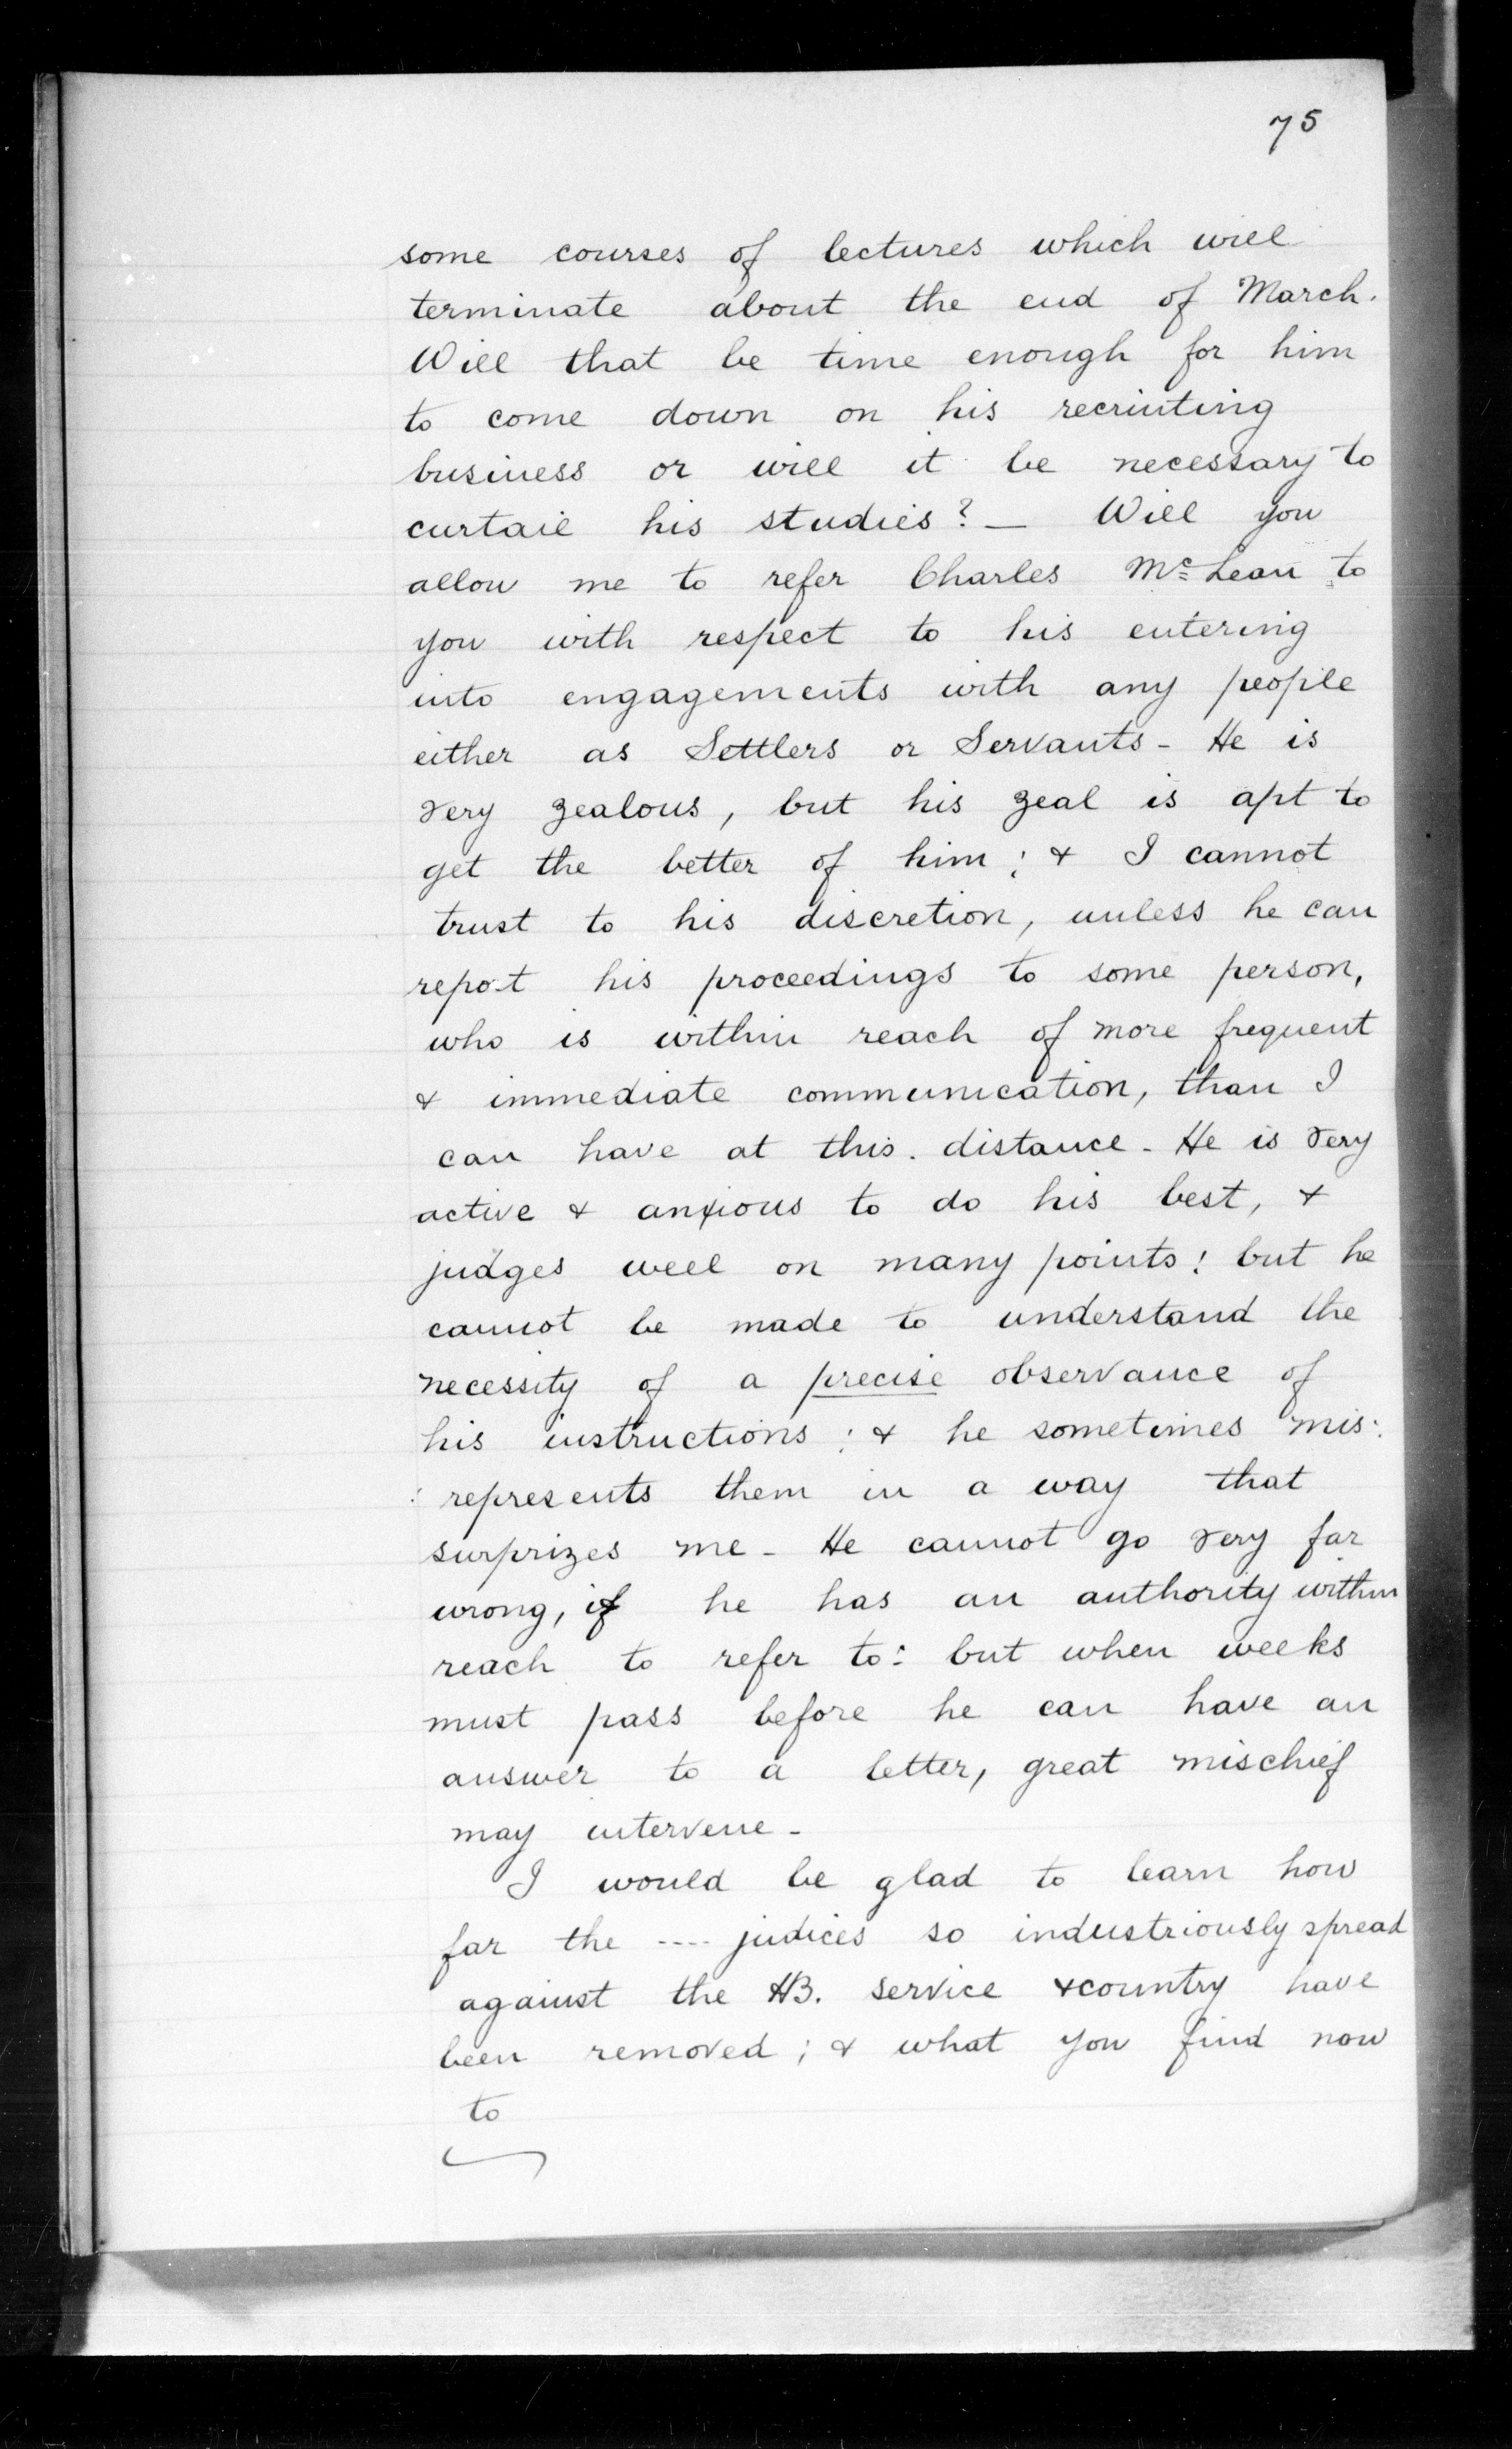 75
some courses of lectures which will
terminate about the end of March.
Will that be time enough for him
to come down on his recruiting
business or will it be necessary to
curtail his studies? — Will you
allow me to refer Charles Mc Lean to
you with respect to his entering
into engagements with any people
either as Settlers or Servants - He is
very zealous, but his zeal is apt to
get the better of him; & I cannot
trust to his discretion, unless he can
repo-t his proceedings to some person,
who is within reach of more frequent
& immediate communication, than I
can have at this. distance - He is very
active & anxious to do his best, &
judges well on many points; but he
cannot be made to understand the
necessity of a precise observance of
his instructions; & he sometimes mis:
: represents them in a way that
surprizes me - He cannot go very far
wrong, if he has an authority within
reach to refer to: but when weeks
must pass before he can have an
answer to a letter, great mischief
may intervene -
I would be glad to learn how
far the ---- judices so industriously spread
against the HB. service & country have
been removed; & what you find now
to